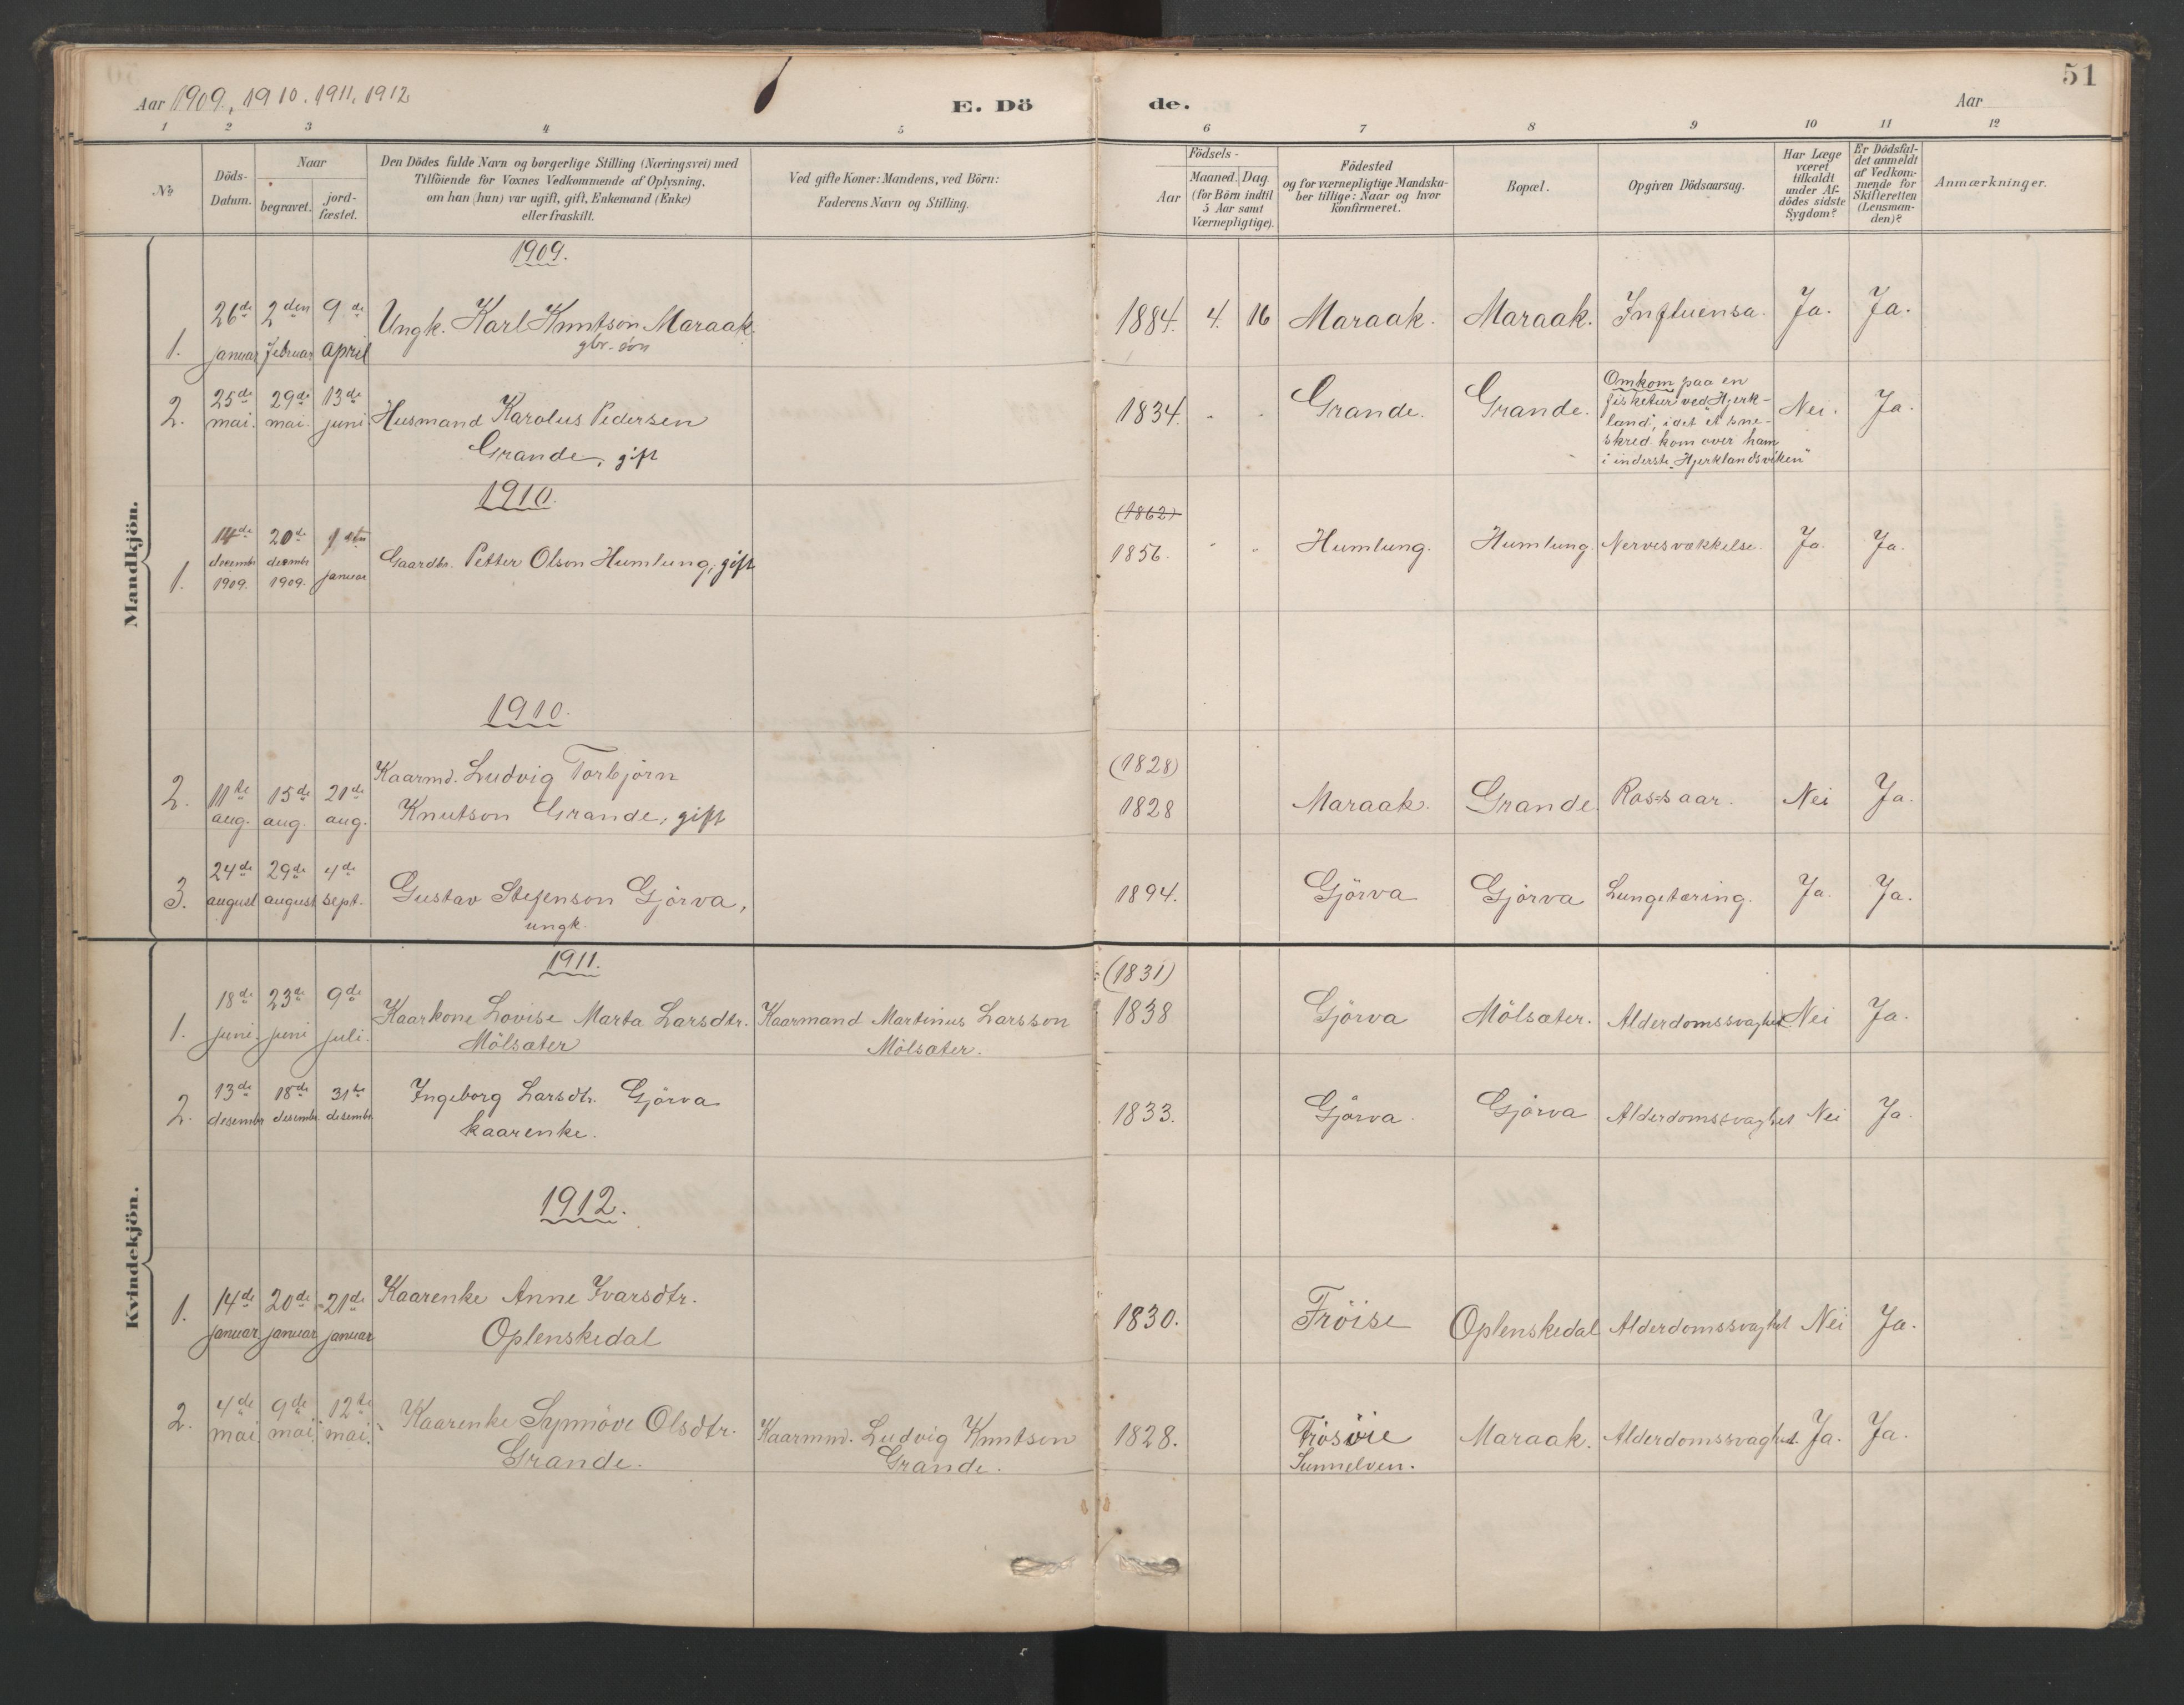 Aar 1909, 1910. 1911, 1912
E. Dö de.
Aar
51
1 2 3 4 5 6 7 8 9 10 11 12
No
Döds-Datum.
Naar
begravet.
jord-fæstet.
Den Dödes fulde Navn og borgerlige Stilling (Næringsvei) med
Tilföiende for Voxnes Vedkommende af Oplysning,
om han (hun) var ugift, gift, Enkemand (Enke)
eller fraskilt.
Ved gifte Koner: Mandens, ved Börn:
Faderens Navn og Stilling.
Födsels-
Aar
Maaned. Dag.
(for Börn indtil
5 Aar samt
Værnepligtige).
Födested
og for værnepligtige Mandska-
ber tillige: Naar og hvor
konfirmeret.
Bopæl.
Opgiven Dödsaarsag.
Har Læge
været
tilkaldt
under Af-
dödes sidste
Sygdom?
Er Dödsfal-
det anmeldt
af Vedkom-
mende for
Skifteretten
(Lensman-
den)?
Anmærkninger.
Mandkjön.
1909.
1. 26de januar 2den februar 9de april Ungk. Karl Knutson Maraak. gbr. sön 1884. 4. 16 Maraak. Maraak. Influensa. Ja. Ja.
2. 25de mai. 29de mai. 13de juni Husmand Karolus Pedersen
Grande, gift 1834. " " Grande. Grande. Omkom paa en
fisketur ved "Hjerk-
land", idet et sne-
skred kom over ham
i inderste "Hjerklandsviken" Nei. Ja.
1910.
(1862)
1. 14de decembr 1909. 20de decembr 1909. 1ste januar Gaardbr. Petter Olson Humlung, gift 1856. " " Humlung. Humlung. Nervesvækkelse. Ja. Ja.
1910.
(1828)
2. 11te aug. 15de aug. 21de aug. Kaarmd. Ludvig Torbjörn
Knutson Grande, gift 1828 Maraak. Grande. Ros-saar. Nei Ja.
3. 24de august 29de august 4de sept. Gustav Stefenson Gjörva,
ungk. 1894. Gjörva Gjörva Lungetæring. Ja. Ja.
Kvindekjön.
1911.
(1831)
1. 18de juni. 23de juni 9de juli. Kaarkone Lovise Marta Larsdtr.
Mölsæter Kaarmand Martinus Larsson
Mölsæter. 1838 Gjörva Mölsæter. Alderdomssvaghet Nei Ja.
2. 13de desembr 18de desembr. 31te desembr. Ingeborg Larsdtr. Gjörva
kaarenke. 1833. Gjörva. Gjörva Alderdomssvaghet Nei Ja.
1912.
1. 14de januar 20de januar 21de januar Kaarenke Anne Ivarsdtr.
Oplenskedal 1830. Fröise Oplenskedal Alderdomssvaghet Nei Ja.
2. 4de mai. 9de mai. 12te mai. Kaarenke Synnöve Olsdtr.
Grande. Kaarmnd. Ludvig Knutson
Grande. 1828. Frösöie
Sunnelven. Maraak. Alderdomssvaghet. Ja. Ja.